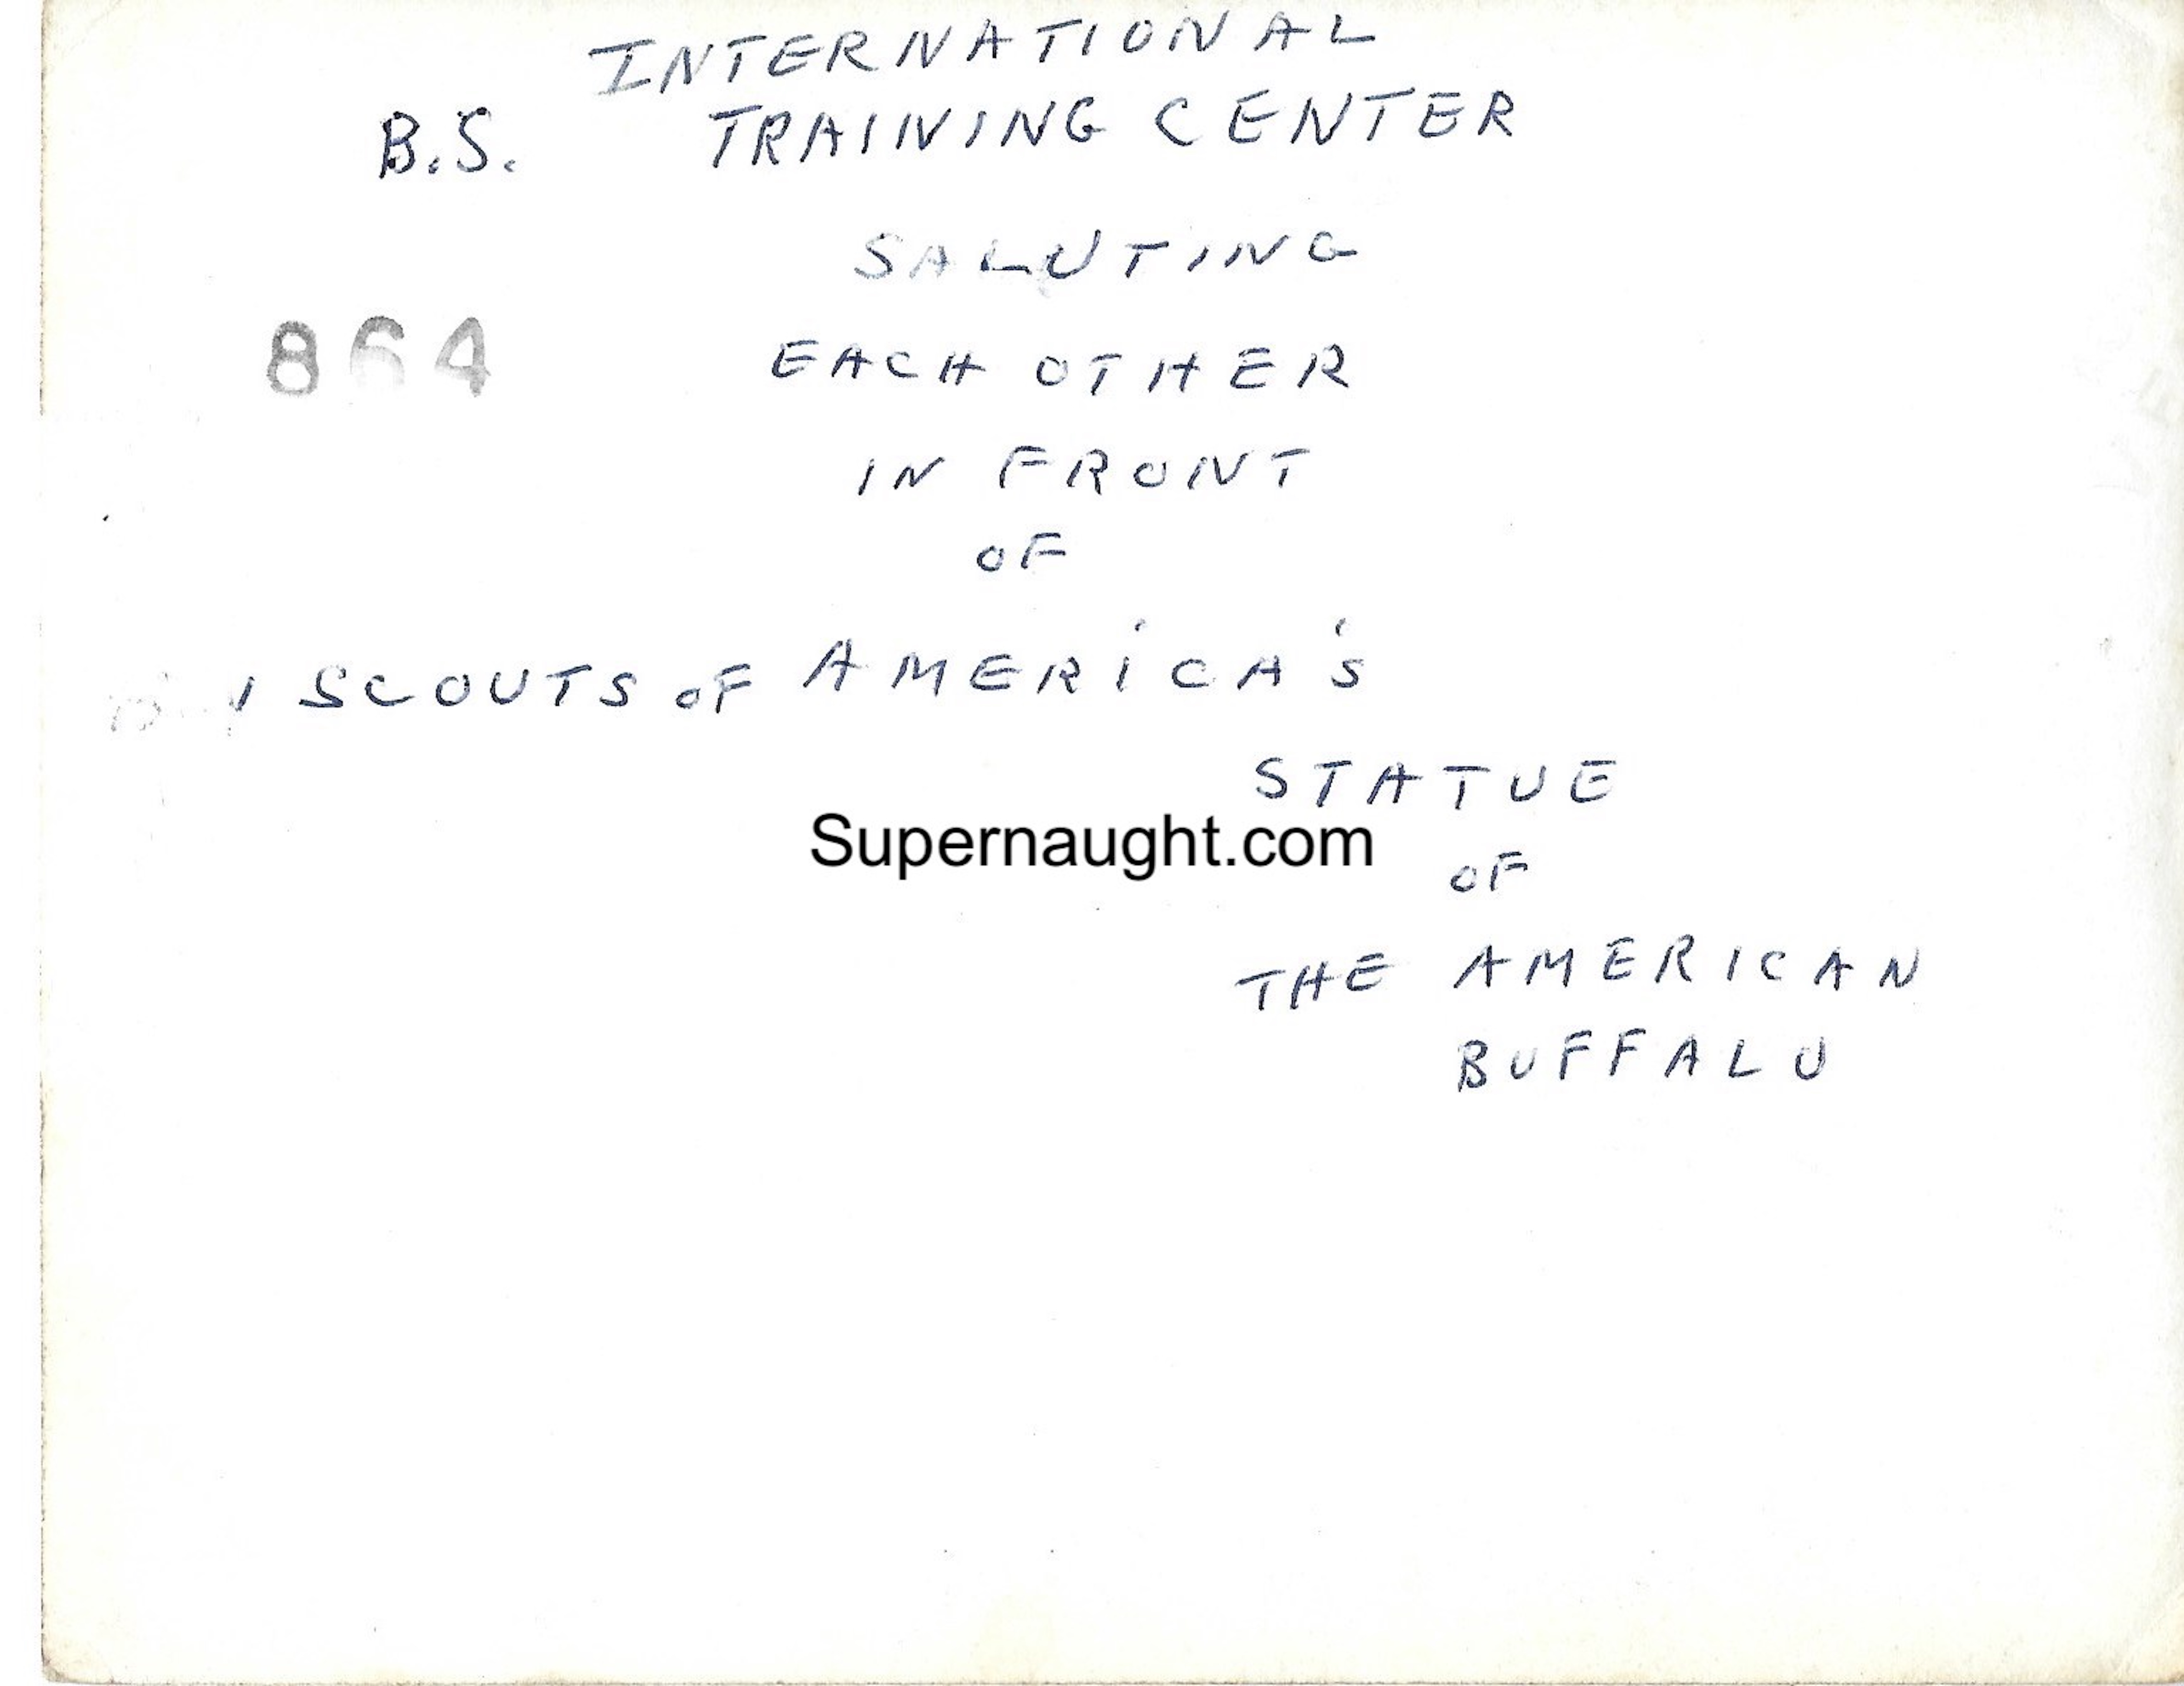 INTERNATIONAL
B.S. TRAINING CENTER
SALUTING
864
EACH OTHER
IN FRONT
OF
SCOUTS OF AMERICA'S
STATUE
Supernaught.com
OF
THE AMERICAN
BUFFALO